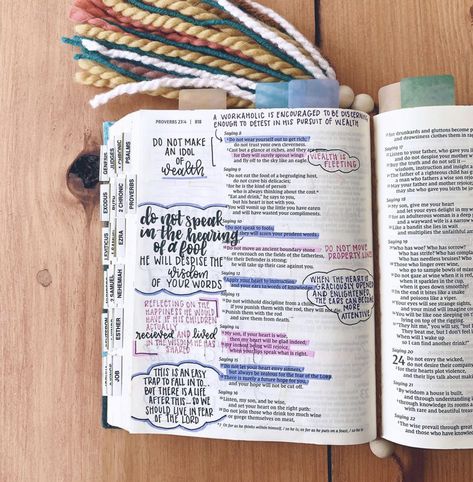 A WORKAHOLIC IS ENCOURAGED TO BE SMART
ENOUGH TO DETEST IN HIS PURSUIT OF WEALTH
PROVERBS 23:4 | 818
DO NOT MAKE
AN IDOL
OF
wealth
do not speak
in the hearing
of a fool
HE WILL DESPISE THE
wisdom
OF YOUR WORDS
REFLECTING ON THE
HAPPINESS HE WOULD
HAVE IF HIS CHILDREN
ACTUALLY
recieved and lived
IN THE WISDOM HE HAS
SHARED
THIS IS AN EASY
TRAP TO FALL IN TO...
BUT THERE IS A LIFE
AFTER THIS... SO WE
SHOULD LIVE IN FEAR
OF THE LORD
GENESIS
EXODUS
LEVITICUS
2 SAMUEL
ESTHER
JOB
1 CHRONIC
2 CHRONIC
EZRA
NEHEMIAH
PSALMS
PROVERBS
Saying 8
Do not wear yourself out to get rich;
do not trust your own cleverness.
Cast but a glance at riches, and they are gone,
for they will surely sprout wings
and fly off to the sky like an eagle.
WEALTH IS
FLEETING
Saying 9
Do not eat the food of a begrudging host,
do not crave his delicacies;
for he is the kind of person
who is always thinking about the cost.
"Eat and drink," he says to you,
but his heart is not with you.
You will vomit up the little you have eaten
and will have wasted your compliments.
Saying 10
Do not speak to fools,
for they will scorn your prudent words.
Saying 11
Do not move an ancient boundary stone
or encroach on the fields of the fatherless,
for their Defender is strong;
he will take up their case against you.
DO NOT MOVE
PROPERTY LINES
Saying 12
Apply your heart to instruction
and your ears to words of knowledge.
WHEN THE HEART IS
GRACIOUSLY OPENED
AND ENLIGHTENED,
THE EARS CAN BECOME
MORE
ATTENTIVE
Saying 13
Do not withhold discipline from a child;
if you punish them with the rod, they will not die.
Punish them with the rod
and save them from death.
Saying 14
My son, if your heart is wise,
then my heart will be glad indeed;
my inmost being will rejoice
when your lips speak what is right.
Saying 15
Do not let your heart envy sinners,
but always be zealous for the fear of the LORD.
There is surely a future hope for you,
and your hope will not be cut off.
Saying 16
Listen, my son, and be wise,
and set your heart on the right path:
Do not join those who drink too much wine
or gorge themselves on meat,
for drunkards and gluttons become
and drowsiness clothes them in rags.
Saying 17
Listen to your father, who gave you
and do not despise your mother
Buy the truth and do not sell it—
wisdom, instruction and insight
The father of a righteous child has
a man who fathers a wise son rejoices
May your father and mother rejoice;
may she who gave you birth be
Saying 18
My son, give me your heart
and let your eyes delight in my
for an adulterous woman is a deep
and a wayward wife is a narrow
Like a bandit she lies in wait
and multiplies the unfaithful among
Saying 19
Who has woe? Who has sorrow?
Who has strife? Who has complaints?
Who has needless bruises?
Those who linger over wine,
who go to sample bowls of
Do not gaze at wine when it is red,
when it sparkles in the cup,
when it goes down smoothly!
In the end it bites like a snake
and poisons like a viper.
Your eyes will see strange
and your mind will imagine
You will be like one sleeping on
lying on top of the rigging.
"They hit me," you will say, "but
They beat me, but I don't feel it!
When will I wake up
so I can find another drink?"
Saying 20
24 Do not envy the wicked,
do not desire their company;
for their hearts plot violence,
and their lips talk about making
Saying 21
By wisdom a house is built,
and through understanding
through knowledge its rooms are
with rare and beautiful treasures
Saying 22
The wise prevail through great
and those who have knowledge